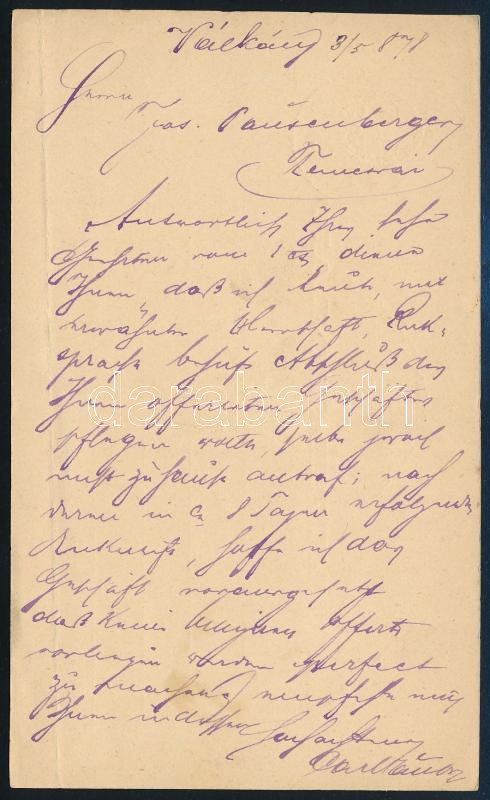 Válkány 3/5 878
Herrn
Jos. Pausenberger
Temesvár
Antwortlich Ihres sehr
Geehrten vom 1 ten dienen
Ihnen, daß ich heute, mit
erwähnter Herrschaft, Rük-
sprache behufs Abschluß des
Ihnen offerirten Geschäftes
pflegen wollte, selbe jedoch
nicht zu Hause antraf; nach
deren in ca 8 Tagen erfolgenden
Ankunft, hoffe ich das
Geschäft vorausgesetzt
daß keine billigeren Offerte
vorliegen werden perfect
zu machen, empfehle mich
Ihnen indessen Hochachtend
darabanth